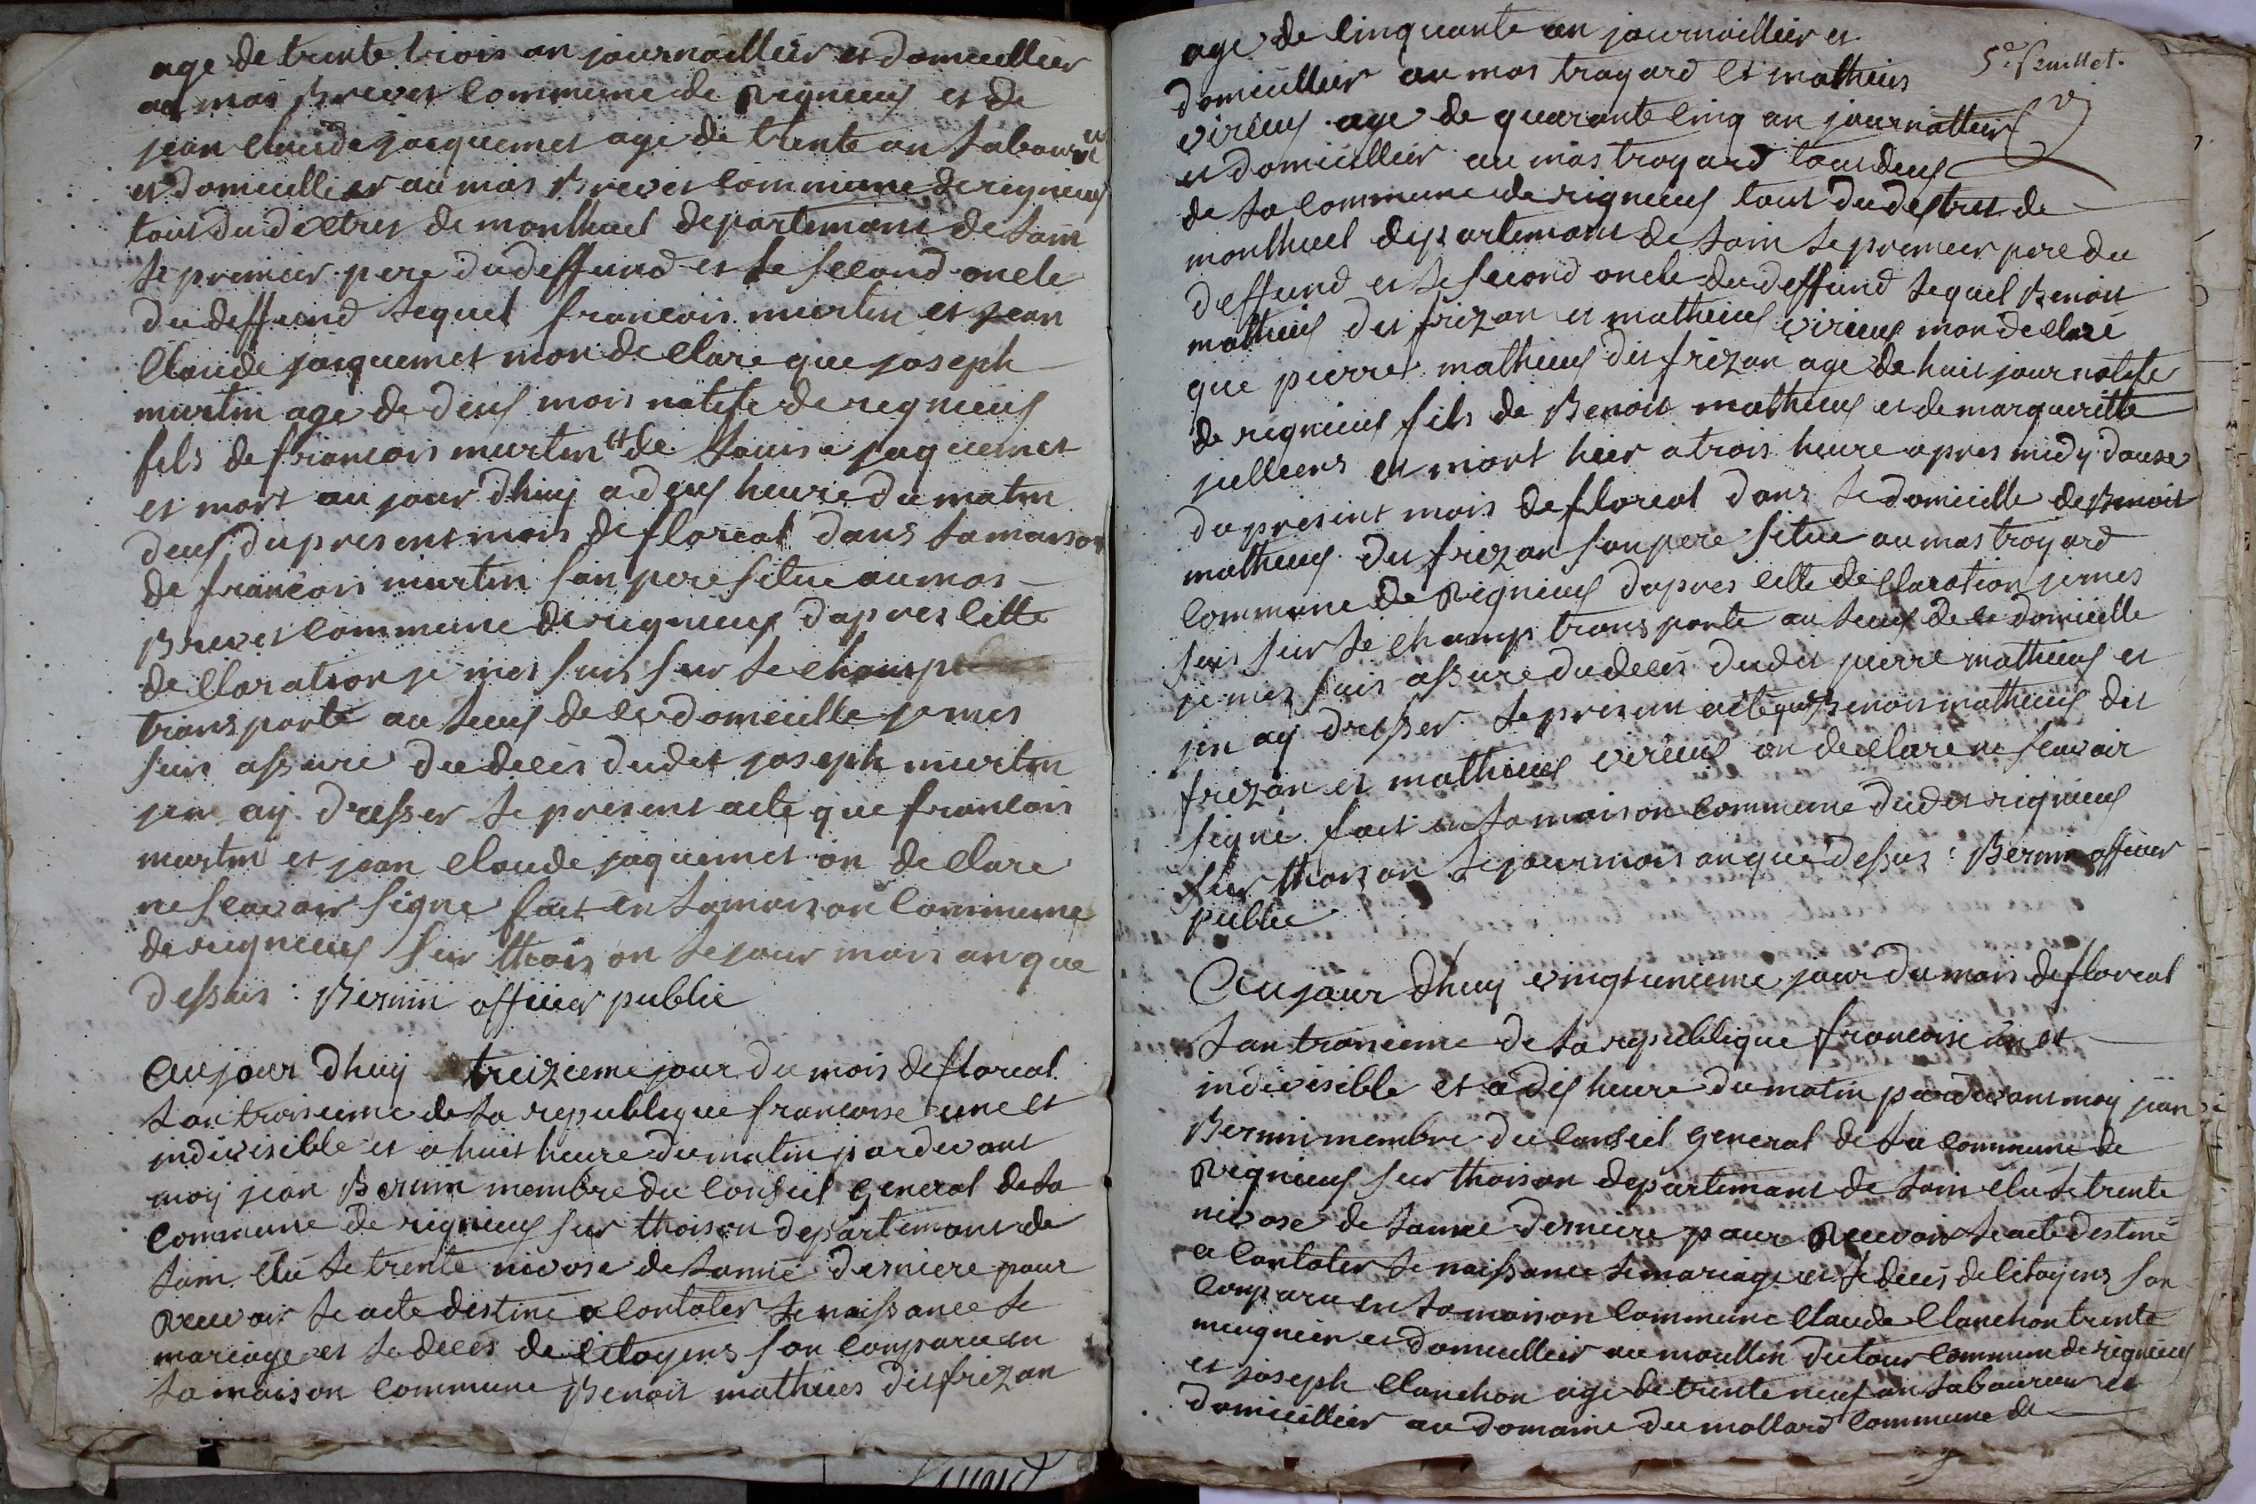 age de trente trois an journaillier et domicillier
au mas Brevet Commune de Rignieux et de
jean Claude jacquemet age de trente an Laboureur
et domicillier au mas Brevet Commune de rignieux
tout du dictret de montluel departemant de Lain
Le premier pere du deffund et Le second oncle
du deffund Lequel francois murtin et jean
Claude jacquemet mon declare que joseph
murtin age de deux mois natife de rignieux
fils de francois murtin et de Louise jaquemet
et mort au jour dhuy a deux heure du matin
deux du present mois de floreal dans La maison
de francois murtin son pere situe au mas
Brevet Commune de rignieux dapres Cette
declaration je mes suis sur Le champ
transporte au Lieux de ce domicille je mes
suis assure du deces dudit joseph murtin
jen ay dresser Le present acte que francois
murtin et jean Claude jaquemet on declare
ne scavoir signe fait en La maison Commune
de rignieux sur thoison Le jour mois an que
dessus : Bernin officier public
Aujour dhuy treizieme jour du mois de floreal
Lan troisieme de La republique francoise une et
indivisible et a huit heure du matin pardevant
moy jean Bernin membre du Conseil general de La
Commune de rignieux sur thoison departemant de
Lain elu Le trente nivose de Lanne derniere pour
Recevoir Le acte destine a Contater Le naissance Le
mariage et Le deces de Citoyens son Conparu en
La maison Commune Benoit mathieus dit frizon
5e. feuillet.
age de Cinquante an journaillier et
domicillier au mas trayard et mathieus
virieux age de quarante Cinq an journallier
et domicillier au mas trayard tout deux
de La Commune de rignieux tout du destret de
montluel departemant de Lain Le premier pere du
deffund et Le second oncle du deffund Lequel Benoit
mathieus dit frizon et mathieus virieux mon declare
que pierre mathieus dit frizon age de huit jour natife
de rignieux fils de Benoit mathieus et de margueritte
juilliens et mort hier a trois heure apres midy douse
du present mois de floreal dans Le domicille de Benoit
mathieus dit frizon son pere situe au mas trayard
Commune de Rignieux dapres Cette declaration je mes
suis sur Le champ transporte au Lieux de ce domicille
je mes suis assure du deces dudit pierre mathieus et
jen ay dresser Le present acte que Benoit mathieus dit
frizon et mathieus virieux on declare ne scavoir
signe fait en La maison Commune dudit rignieux
sur thoison Le jour mois an que dessus : Bernin officier
public
Aujour dhuy vingt unieme jour du mois de floreal
Lan troisieme de La republique francoise une et
indivisible et a dix heure du matin pardevant moy jean
Bernin membre du Conseil general de La Commune de
Rignieux sur thoison departemant de Lain elu Le trente
nivose de Lanne derniere pour Recevoir Le acte destine
a Contater Le naissance Le mariage et Le deces de Citoyens son
Conparu en La maison Commune Claude Clanchon trente
meugnier et domicillier au moullin dutour Commune de rignieux
et joseph Clanchon age de trente neuf an Laboureur et
domicillier au domaine du mollard Commune de